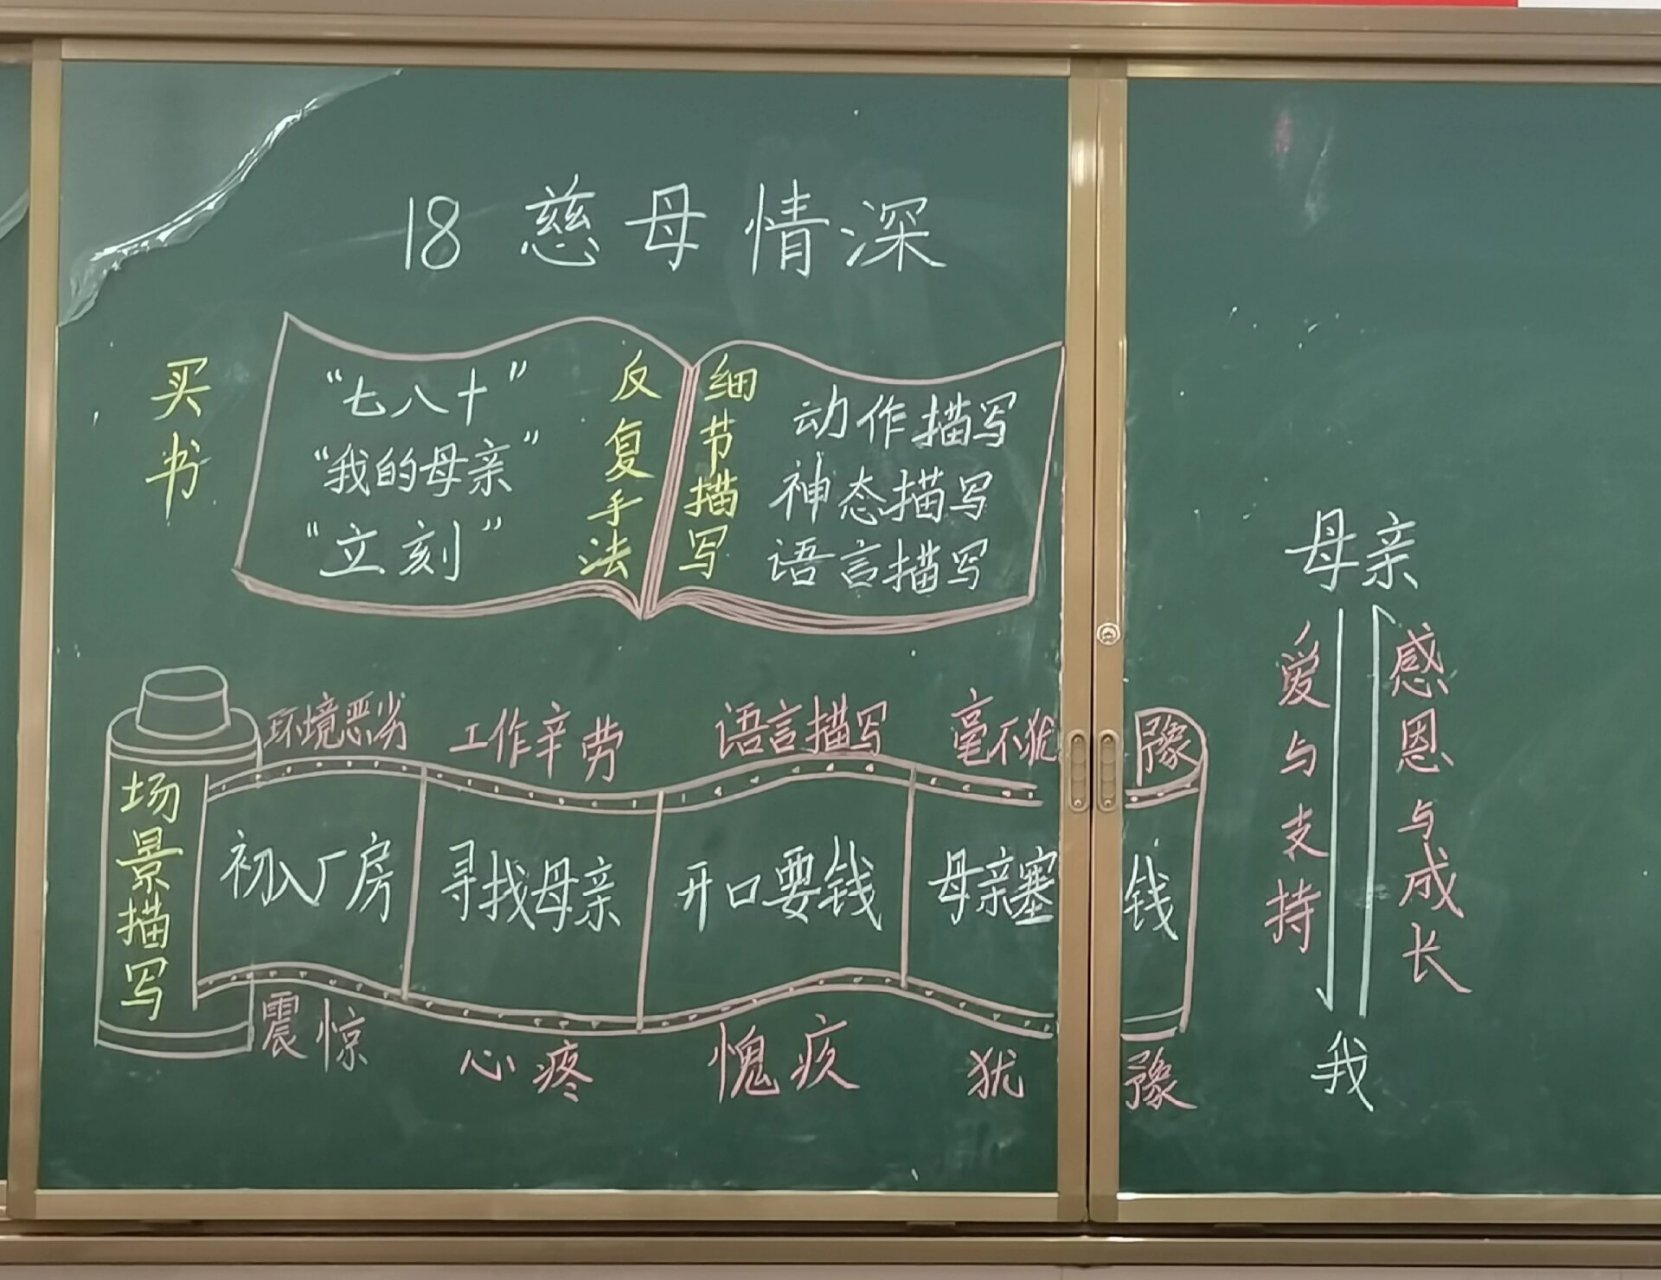 18 慈母情深
买书
“七八十”
“我的母亲”
“立刻”
反复手法
细节描写
动作描写
神态描写
语言描写
场景描写
环境恶劣 工作辛劳 语言描写 毫不犹豫
初入厂房 寻找母亲 开口要钱 母亲塞钱
震惊 心疼 愧疚 犹豫
母亲
爱与支持
感恩与成长
我